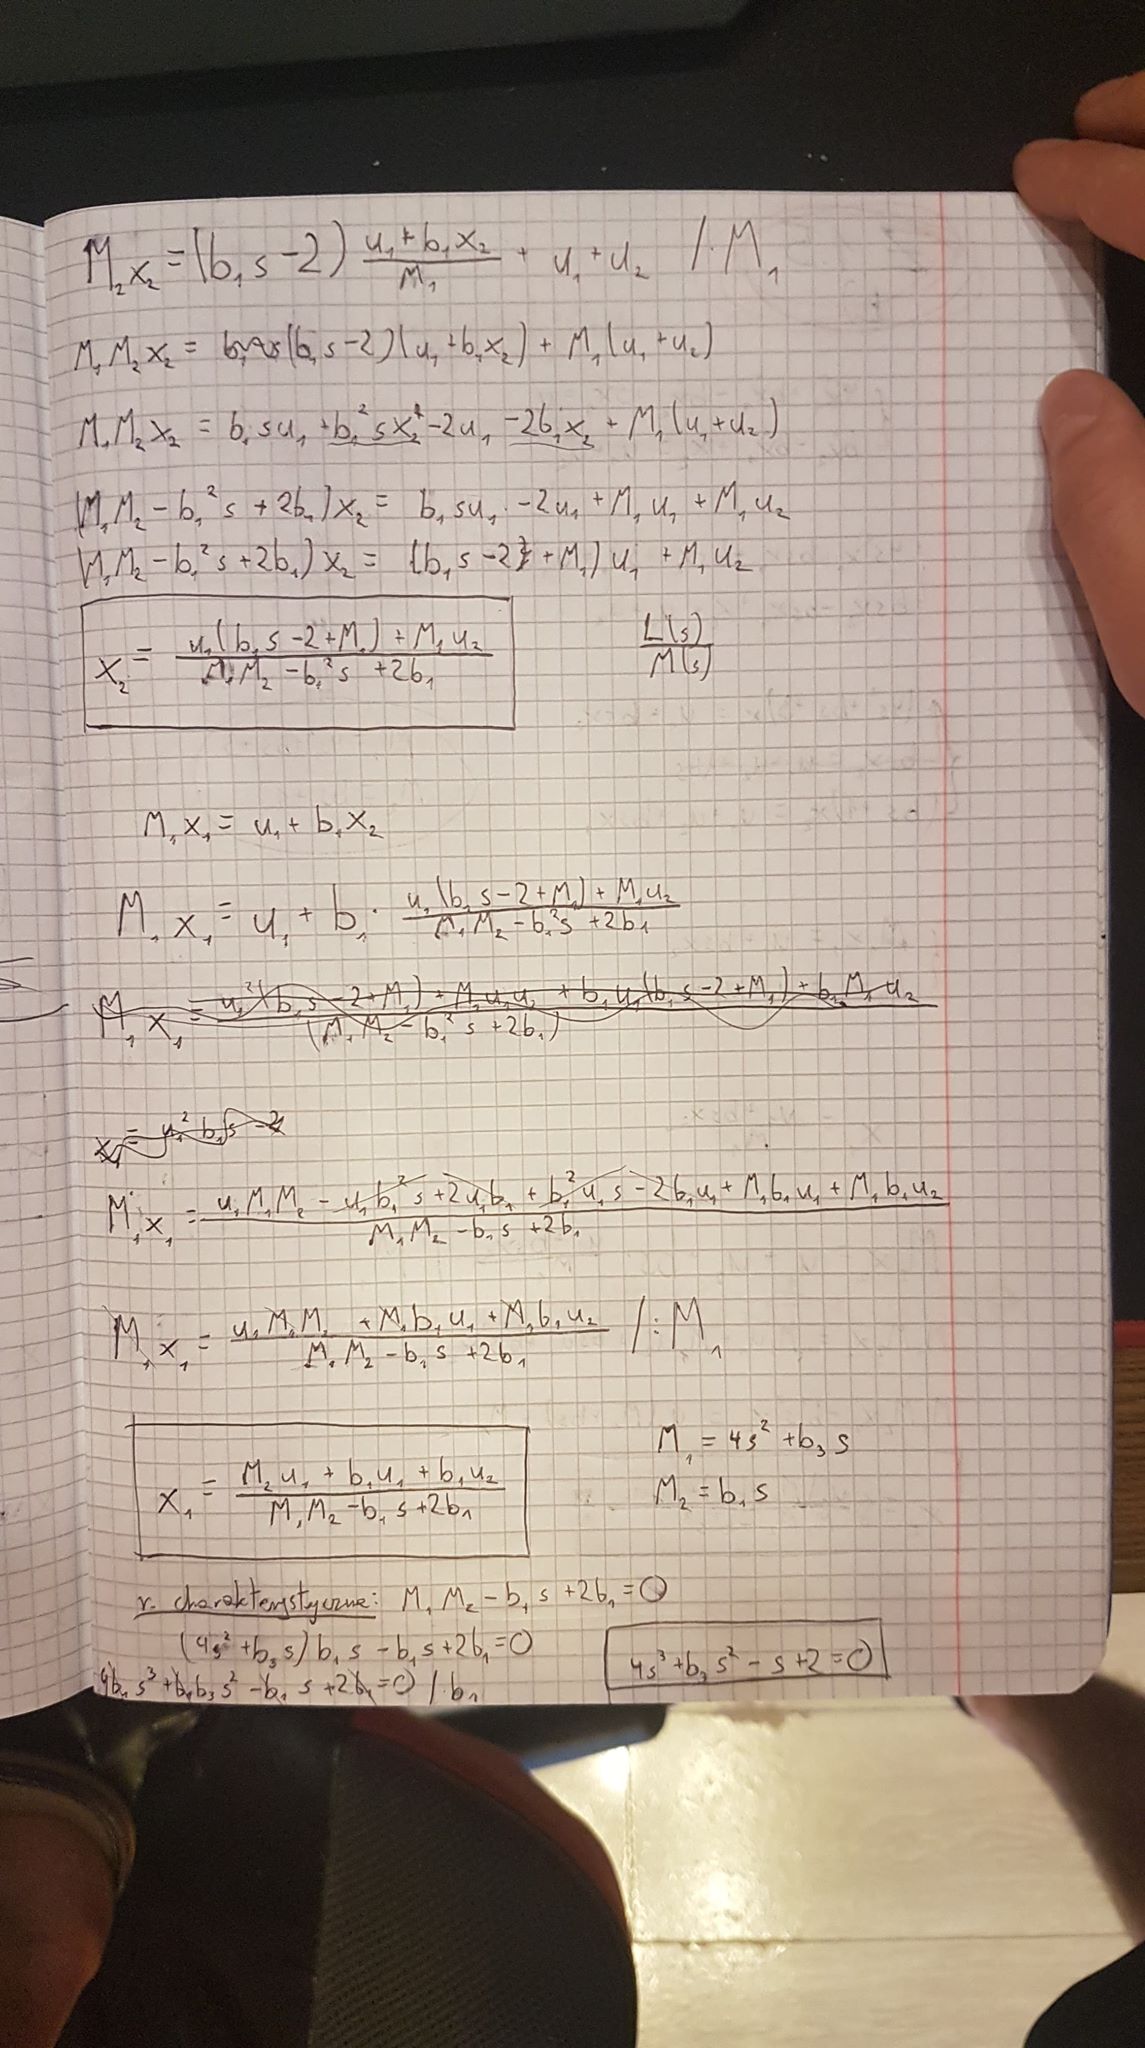 M₂x₂ = (b₁s - 2) (u₁ + b₁x₂)/M₁ + u₁ + u₂ /·M₁
M₁M₂x₂ = (b₁s - 2)(u₁ + b₁x₂) + M₁(u₁ + u₂)
M₁M₂x₂ = b₁su₁ + b₁²sx₂ - 2u₁ - 2b₁x₂ + M₁(u₁ + u₂)
(M₁M₂ - b₁²s + 2b₁)x₂ = b₁su₁ - 2u₁ + M₁u₁ + M₁u₂
(M₁M₂ - b₁²s + 2b₁)x₂ = (b₁s - 2 + M₁)u₁ + M₁u₂
x₂ = (u₁(b₁s - 2 + M₁) + M₁u₂)/(M₁M₂ - b₁²s + 2b₁)
L(s)/M(s)
M₁x₁ = u₁ + b₁x₂
M₁x₁ = u₁ + b₁ · (u₁(b₁s - 2 + M₁) + M₁u₂)/(M₁M₂ - b₁²s + 2b₁)
M₁x₁ = (u₁²(b₁s - 2 + M₁) + M₁u₁u₂ + b₁u₁(b₁s - 2 + M₁) + b₁M₁u₂)/(M₁M₂ - b₁²s + 2b₁)
x₁ = u₁²b₁s - 2
M₁x₁ = (u₁M₁M₂ - u₁b₁²s + 2u₁b₁ + b₁²u₁s - 2b₁u₁ + M₁b₁u₁ + M₁b₁u₂)/(M₁M₂ - b₁s + 2b₁)
M₁x₁ = (u₁M₁M₂ + M₁b₁u₁ + M₁b₁u₂)/(M₁M₂ - b₁s + 2b₁) /:M₁
x₁ = (M₂u₁ + b₁u₁ + b₁u₂)/(M₁M₂ - b₁s + 2b₁)
M₁ = 4s² + b₃s
M₂ = b₁s
r. charakterystyczne: M₁M₂ - b₁s + 2b₁ = 0
(4s² + b₃s)b₁s - b₁s + 2b₁ = 0
4b₁s³ + b₁b₃s² - b₁s + 2b₁ = 0 /·b₁
4s³ + b₃s² - s + 2 = 0